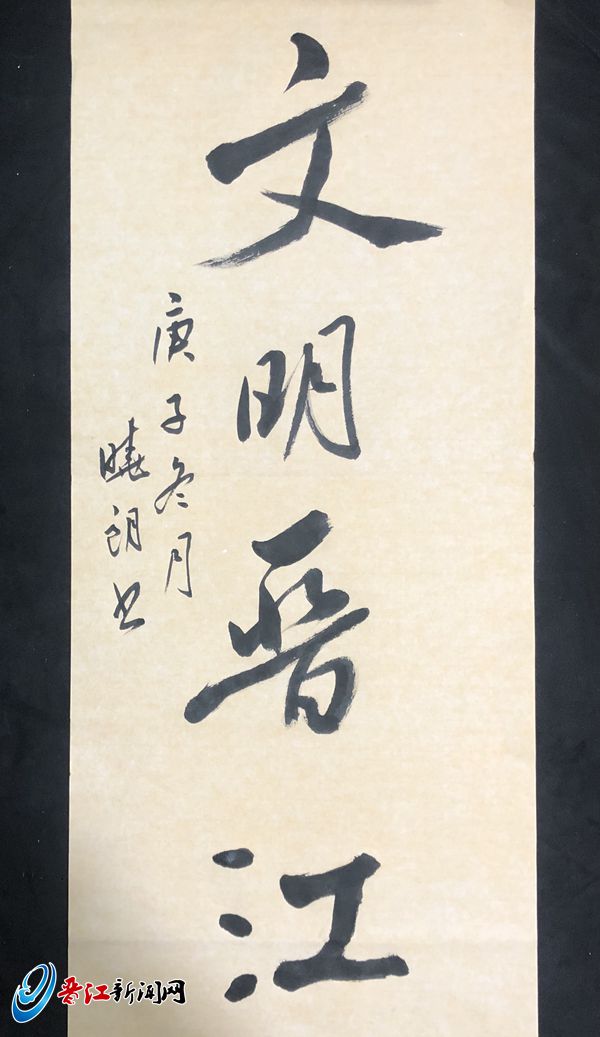 文明晋江
庚子冬月
晓朗书
晋江新闻网